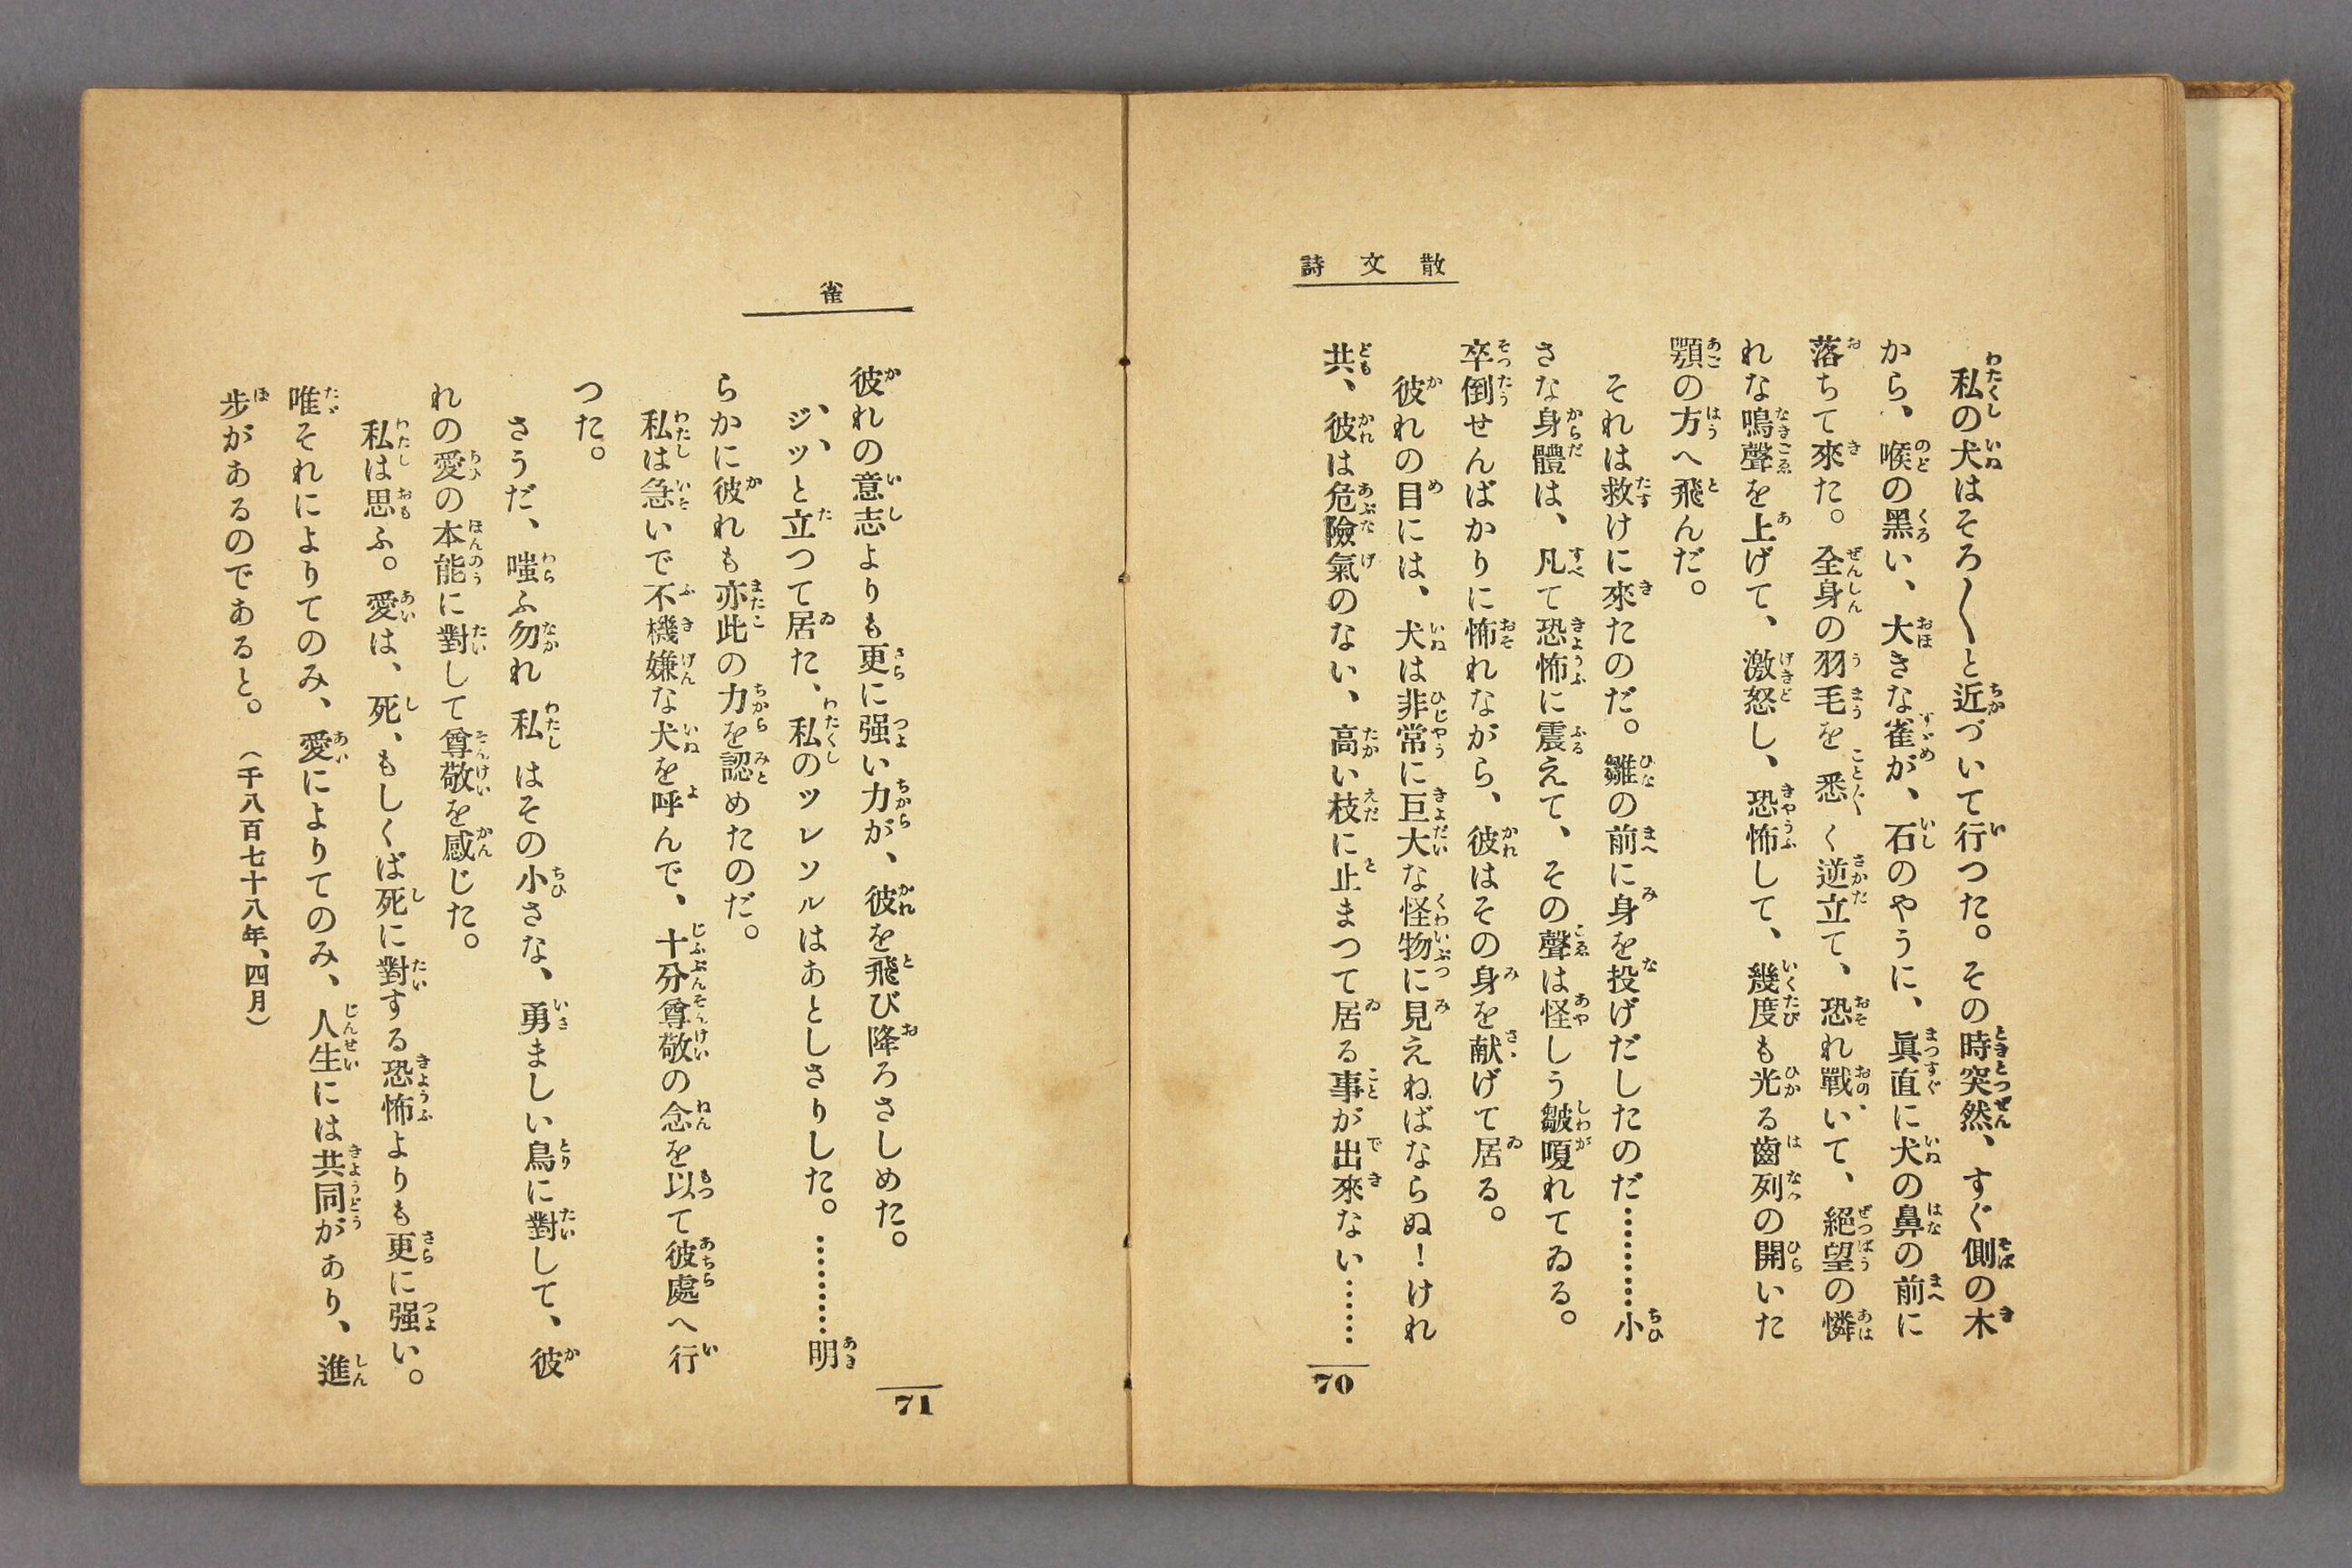 散文詩
私の犬はそろ〱と近づいて行つた。その時突然、すぐ側の木
から、喉の黑い、大きな雀が、石のやうに、眞直に犬の鼻の前に
落ちて來た。全身の羽毛を悉く逆立て、恐れ戰いて、絕望の憐
れな鳴聲を上げて、激怒し、恐怖して、幾度も光る齒列の開いた
顎の方へ飛んだ。
それは救けに來たのだ。雛の前に身を投げだしたのだ…………小
さな身體は、凡て恐怖に震えて、その聲は怪しう皺嗄れてゐる。
卒倒せんばかりに怖れながら、彼はその身を献げて居る。
彼れの目には、犬は非常に巨大な怪物に見えねばならぬ！けれ
共、彼は危險氣のない、高い枝に止まつて居る事が出來ない……
70
雀
彼れの意志よりも更に强い力が、彼を飛び降ろさしめた。
ジッと立つて居た、私のツレソルはあとしさりした。…………明
らかに彼れも亦此の力を認めたのだ。
私は急いで不機嫌な犬を呼んで、十分尊敬の念を以て彼處へ行
つた。
さうだ、嗤ふ勿れ私はその小さな、勇ましい鳥に對して、彼
れの愛の本能に對して尊敬を感じた。
私は思ふ。愛は、死、もしくば死に對する恐怖よりも更に强い。
唯それによりてのみ、愛によりてのみ、人生には共同があり、進
步があるのであると。（千八百七十八年、四月）
71